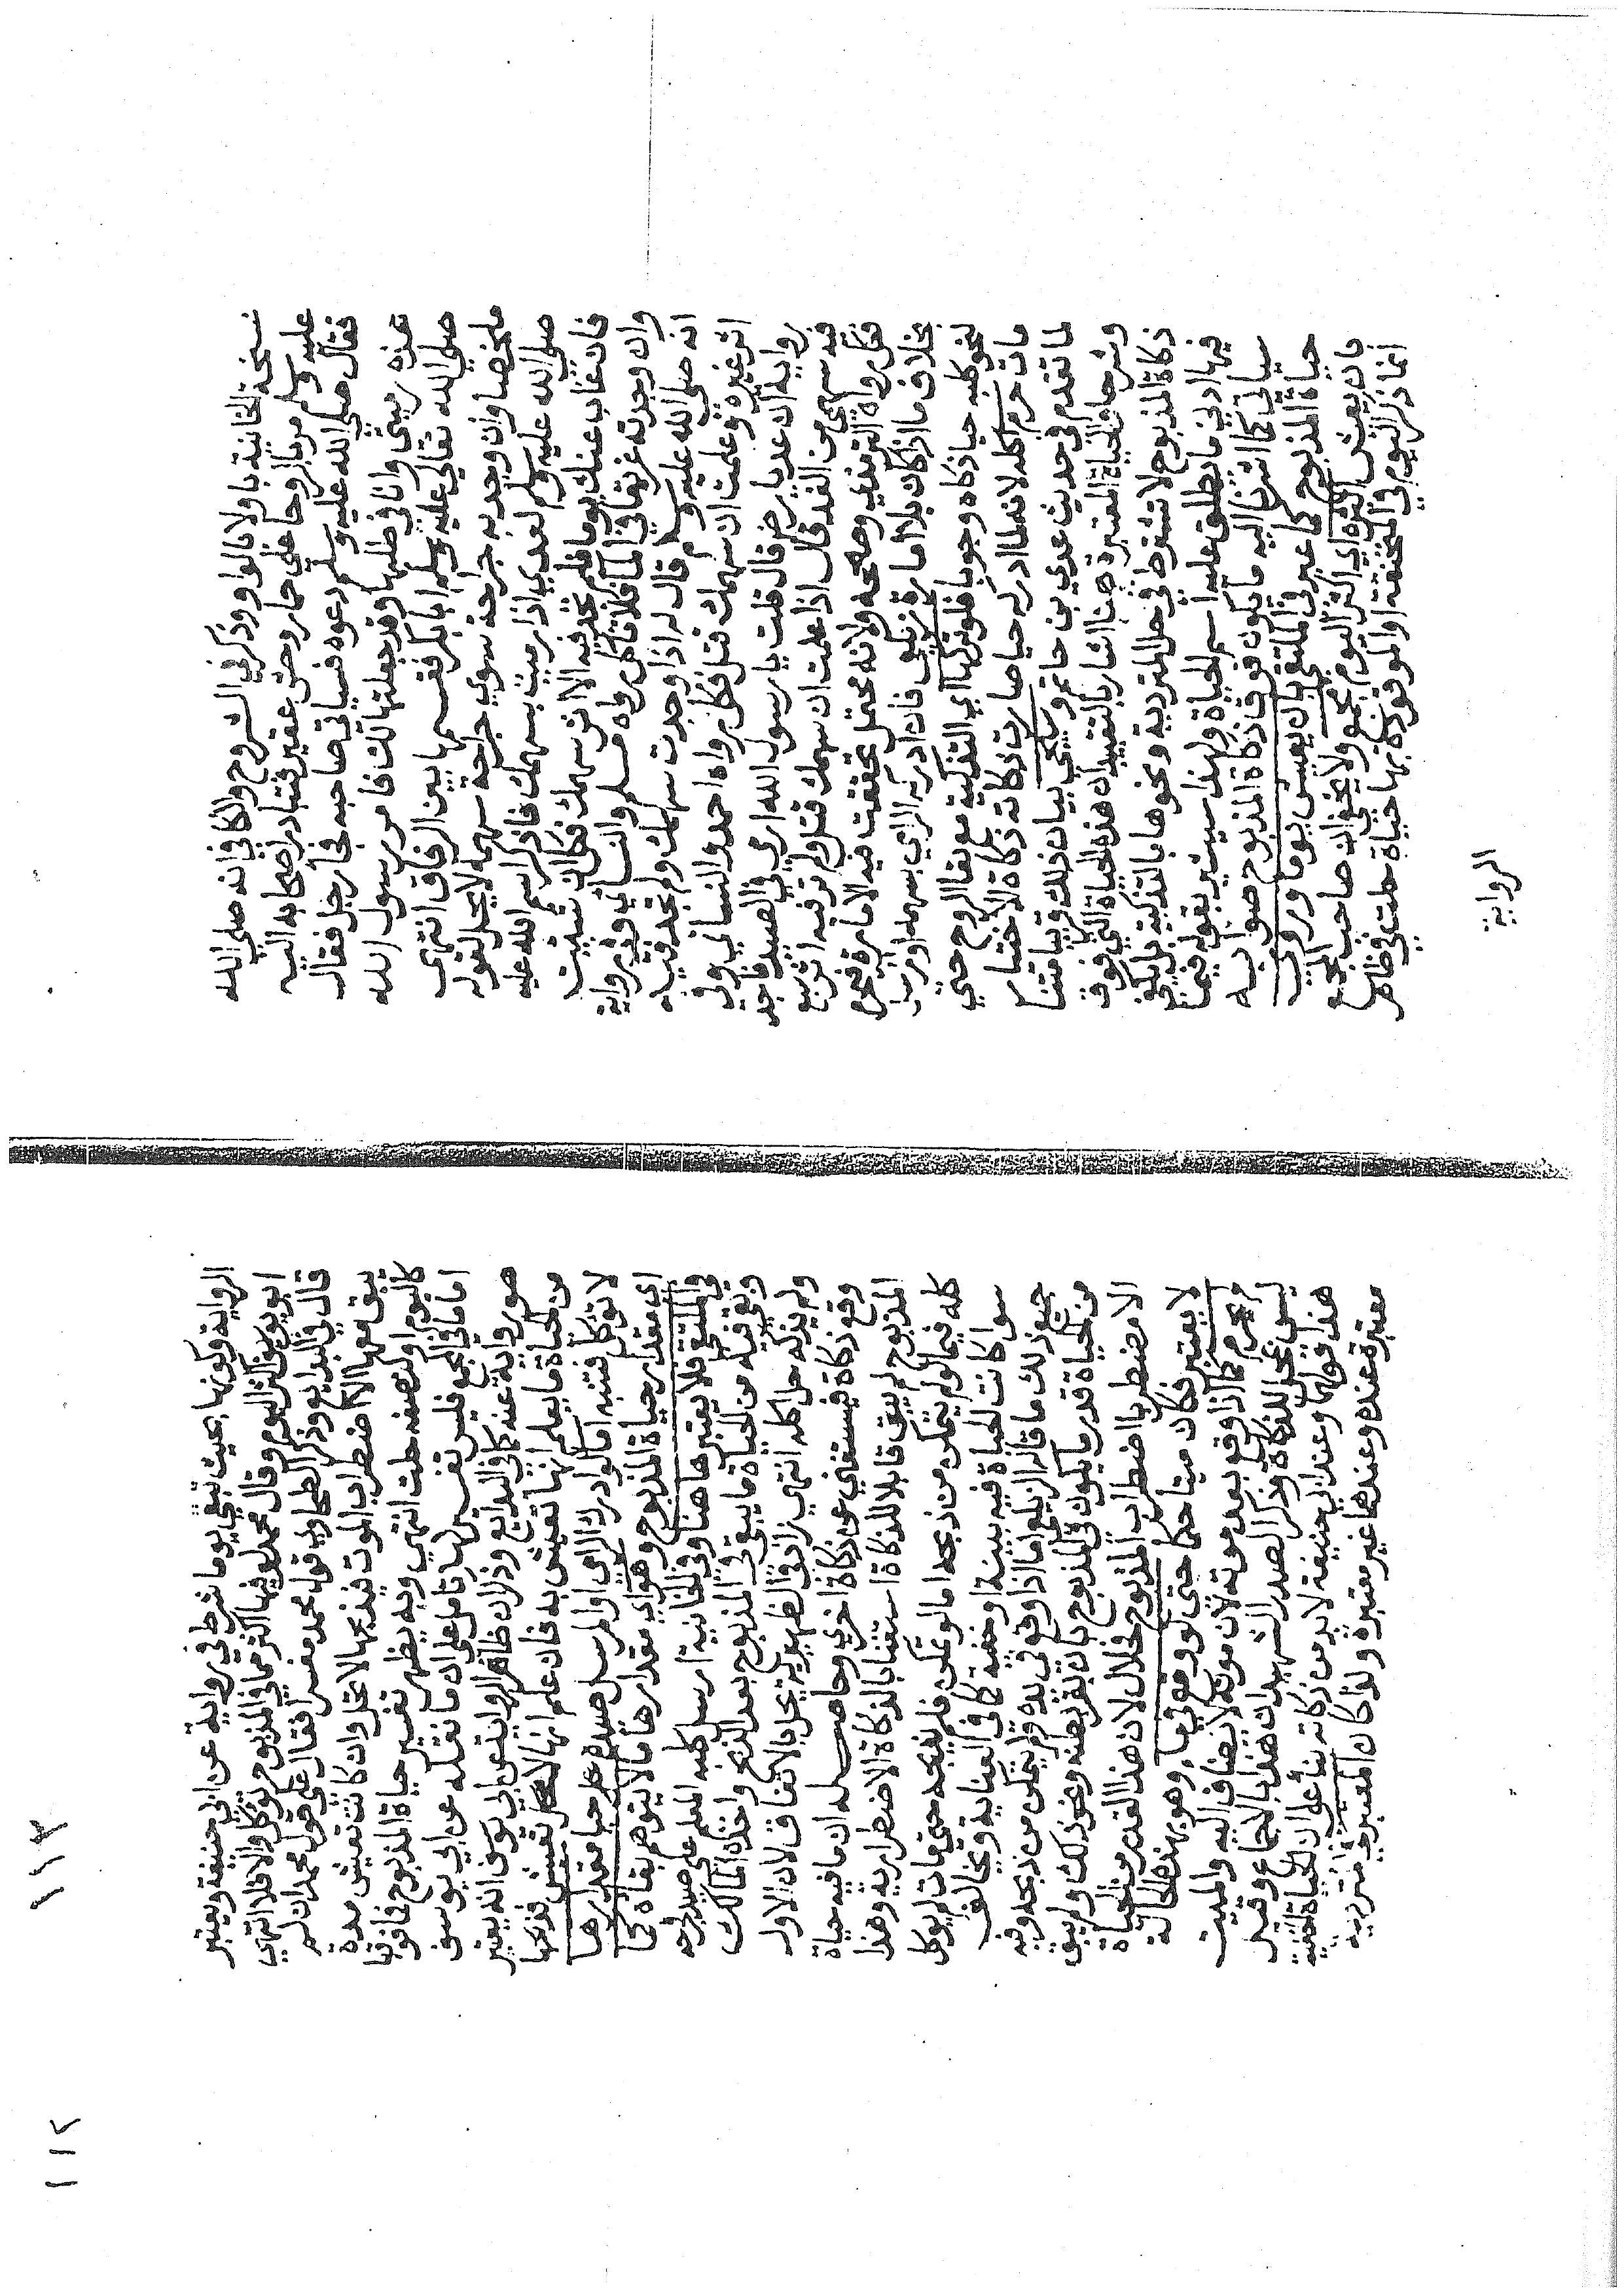 نسخة الخانية باولا بالواو وذكر في الشروح والكافي انه صلى الله
عليه وسلم مر بالروحاء على حمار وحش عقير فتبادر اصحابه اليه
فقال صلى الله عليه وسلم دعوه فسياتي صاحبه فجاء رجل فقال
هذه رميتي وانا في طلبها وقد جعلتها لك فامر رسول الله
صلى الله تعالى عليه وسلم ابا بكر فقسمها بين الرفاق انتهى
ملخصا وان وجد به جراحة سوى جراحة سهمه لا يحل لقوله
صلى الله عليه وسلم لعدي اذا رميت بسهمك فاذكر اسم الله عليه
فان غاب عنك يوما فلم تجد فيه الا اثر سهمك فكل ان شئت
وان وجدته غريقا في الماء فلا تاكل رواه مسلم والنسائي وفي رواية
انه صلى الله عليه وسلم قال له اذا وجدت سهمك ولم تجد فيه
اثر غيره وعلمت ان سهمك قتل فكل رواه احمد والنسائي وفي
رواية ان عديا رضي قال قلت يا رسول الله ارمي في الصيد فاجد
فيه سهمي من الغد قال اذا علمت ان سهمك قتل ولم تر فيه اثر سبع
فكل رواه الترمذي وصححه ولانه محتمل تحققت فيه الامارة فحرم
بخلاف ما اذا كان بلا امارة فان ادركه الرامي بسهمه او مرسل
نحو كلبه حيا ذكاه وجوبا فلو تركها اي التذكية مع بقاء الروح حتى
مات حرم اكله لانه لما ادركه حيا صارت ذكاته ذكاة الاختيار
لما تقدم في حديث عدي بن حاتم وسيجئ بيان ذلك قريبا متنا
وشرحا والحياة المعتبرة هنا اشار بالتقييد ان هذه الحياة التي فوق
ذكاة المذبوح لا تشترط في حل المتردية ونحوها بالتذكية بل يكفي
فيها ادنى ما يطلق عليه اسم الحياة ولهذا سيشير بقوله فيما
سياتي كما اشرنا اليه ما يكون فوق ذكاة المذبوح صوابه
حياة المذبوح كما عبر في الملتقى بان يعيش يوما وروي
بان يعيش اكثره اي اكثر اليوم مجمع ولا يخفى ان صاحب المجمع
انما ذكر اليوم في المنخنقة او الموقوذة بها حياة حلت في ظاهر
الرواية
الرواية وكونها بحيث تبقى يوما شرط في رواية عن ابي حنيفة ويعتبر
ابو يوسف اكثر اليوم وقال محمد لو فيها اكثر مما في المذبوح تؤكل والا فلا انتهى
قال في البدايع وذكر الطحاوي قول محمد مفسرا فقال على قول محمد ان لم
تبق معها الا اضطراب الموت فذبحها لا تحل وان كانت تعيش مدة
كاليوم او كنصفه حلت انتهى وبه يظهر تفسير حياة المذبوح فما فوقها
اما ما في المجمع فليس تفسيرا لها تامل على ان ما نقله عن ابي يوسف
هو رواية عنه كما في البدايع وذكر ان ظاهر الرواية عن ابي يوسف انه يعتبر
من الحياة ما يعلم انها تعيش به فان علم انها لا تعيش فذبحها
لا تؤكل فتنبه اما لو ادرك الرامي والمرسل صيده حيا مقدارها
اي مقدار حياة المذبوح وهو اي مقدارها ما لا يتوهم بقاه كما
في الملتقى فلا يعتبرها هنا وفي الخانية ارسل كلبه المعلم على صيد فجرحه
وبقي فيه من الحياة ما يبقى في المذبوح بعد الذبح واخذه المالك
ولم يذكه حل اكله انتهى زاد في الظهيرية يحل بالاتفاق لان الاول
وقع ذكاة فيستغني عن ذكاة اخرى وحاصله ان ما فيه حياة
المذبوح لم يبق قابلا للذكاة استغناء بالذكاة الاضطرارية وهذا
كله فيما لو لم يتمكن من ذبحه اما لو تمكن فلم يذبحه حتى مات لم يوكل
سوا كانت الحياة فيه بينة او خفية كما في العناية ويخالف
جميع ذلك ما قاله الزيلعي اما اذا وقع في يده ولم يتمكن من ذبحه وفيه
من الحياة قدر ما يكون في المذبوح بان بقر بطنه ونحو ذلك ولم يبق
الا مضطربا اضطراب المذبوح فحلال لان هذا القدر من الحياة
لا يعتبر فكان ميتا حكما حتى لو وقع في ماء وهو بهذه الحالة
لم يحرم كما اذا وقع بعد موته لان موته لا يضاف اليه والميت
ليس بمحل للذكاة وذكر الصدر الشهيد ان هذا بالاجماع وقيل
هذا قولهما وعند ابي حنيفة لا بد من ذكاته بناء على ان الحياة الخفية
معتبرة عنده وعندهما غير معتبرة ولذا كان المعتبر في متردية
١١٣
١١٢